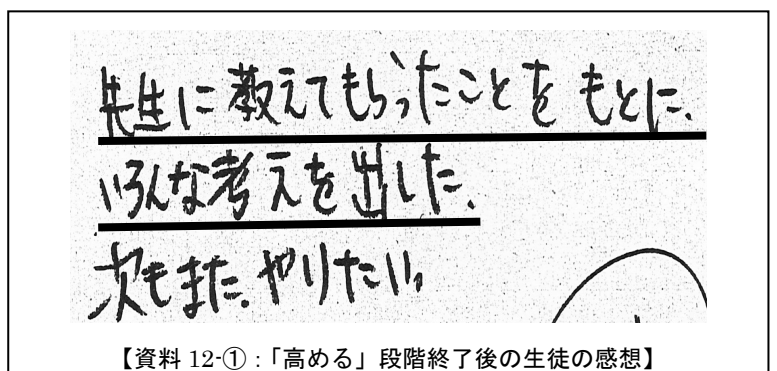 先生に教えてもらったことをもとに、
いろんな考えを出した。
次もまた、やりたい。
【資料 12-①：「高める」段階終了後の生徒の感想】